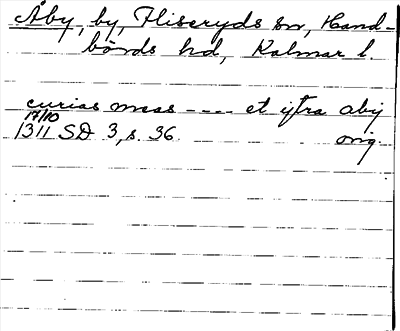 Åby, by, Fliseryds sn, Hand-
börds hd, Kalmar l.
curias meas ---- et ytra aby
17/10
1311 SD 3, s. 36. orig.